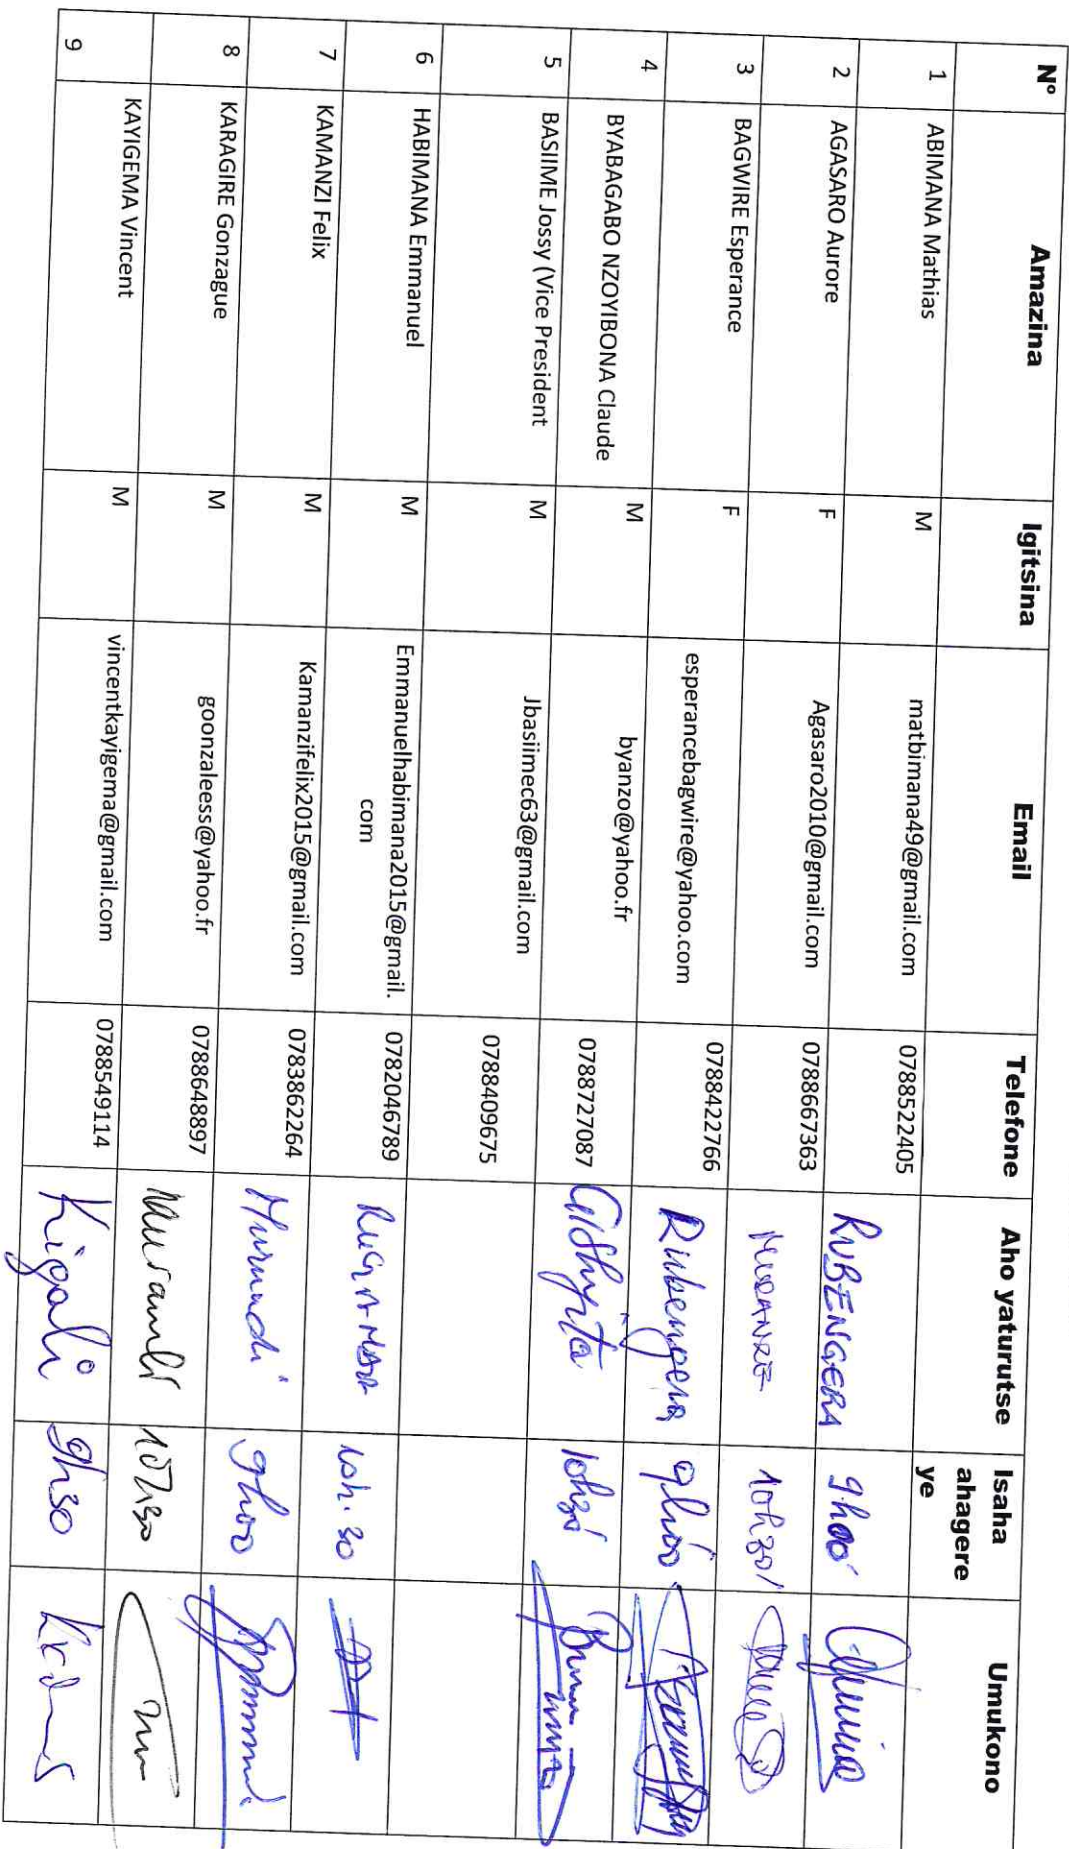 N° Amazina Igitsina Email Telefone Aho yaturutse Isaha ahagere ye Umukono
1 ABIMANA Mathias M matbimana49@gmail.com 0788522405 RUBENGERA 9h00
2 AGASARO Aurore F Agasaro2010@gmail.com 0788667363 10h30
3 BAGWIRE Esperance F esperancebagwire@yahoo.com 0788422766 Rubengera 9h00
4 BYABAGABO NZOYIBONA Claude M byanzo@yahoo.fr 0788727087 Gishyita 10h30
5 BASIIME Jossy (Vice President M Jbasiimec63@gmail.com 0788409675
6 HABIMANA Emmanuel M Emmanuelhabimana2015@gmail.
com 0782046789 10h.30
7 KAMANZI Felix M Kamanzifelix2015@gmail.com 0783862264 9h00
8 KARAGIRE Gonzague M goonzaleess@yahoo.fr 0788648897 10h30
9 KAYIGEMA Vincent M vincentkayigema@gmail.com 0788549114 Kigali 9h30